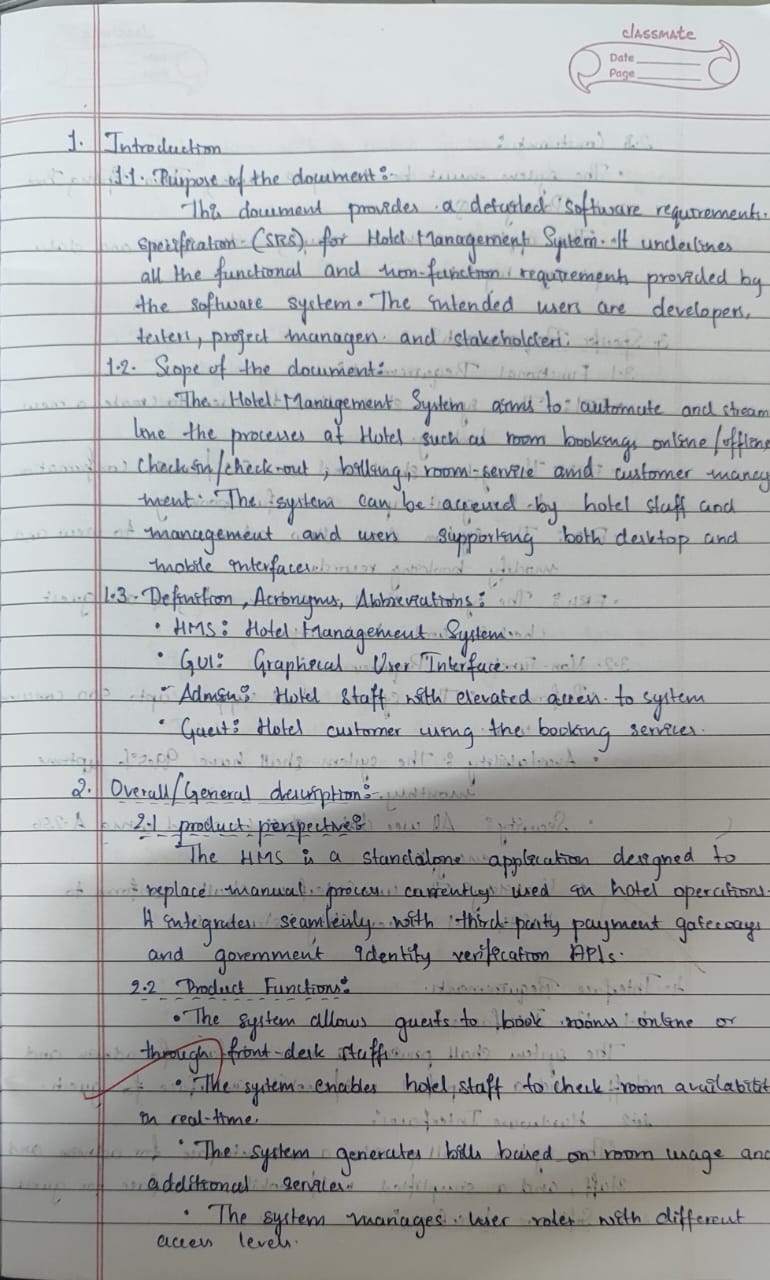 classmate
Date
Page
1. Introduction
1.1. Purpose of the document:-
This document provides a detailed software requirements.
specification (SRS) for Hotel Management System. It underlines
all the functional and non-function requirements provided by
the software system. The intended users are developers,
testers, project managers and stakeholders.
1.2. Scope of the document:-
The Hotel Management System aims to automate and stream
line the processes at Hotel such as room bookings online/offline
checkin/check-out, billing, room-service and customer manag
ment. The system can be accessed by hotel staff and
management and users supporting both desktop and
mobile interfaces.
1.3. Definition, Acronyms, Abbreviations:
• HMS: Hotel Management System.
• GUI: Graphical User Interface.
• Admin: Hotel staff with elevated access to system
• Guest: Hotel customer using the booking services.
2. Overall/General description:-
2.1 product perspective:
The HMS is a standalone application designed to
replace manual process currently used in hotel operations.
It integrates seamlessly with third-party payment gateways
and government identity verification APIs.
2.2 Product Functions:
• The system allows guests to book rooms online or
through front-desk staff.
• The system enables hotel staff to check room availabilit
in real-time.
• The system generates bills based on room usage and
additional services.
• The system manages user roles with different
access levels.